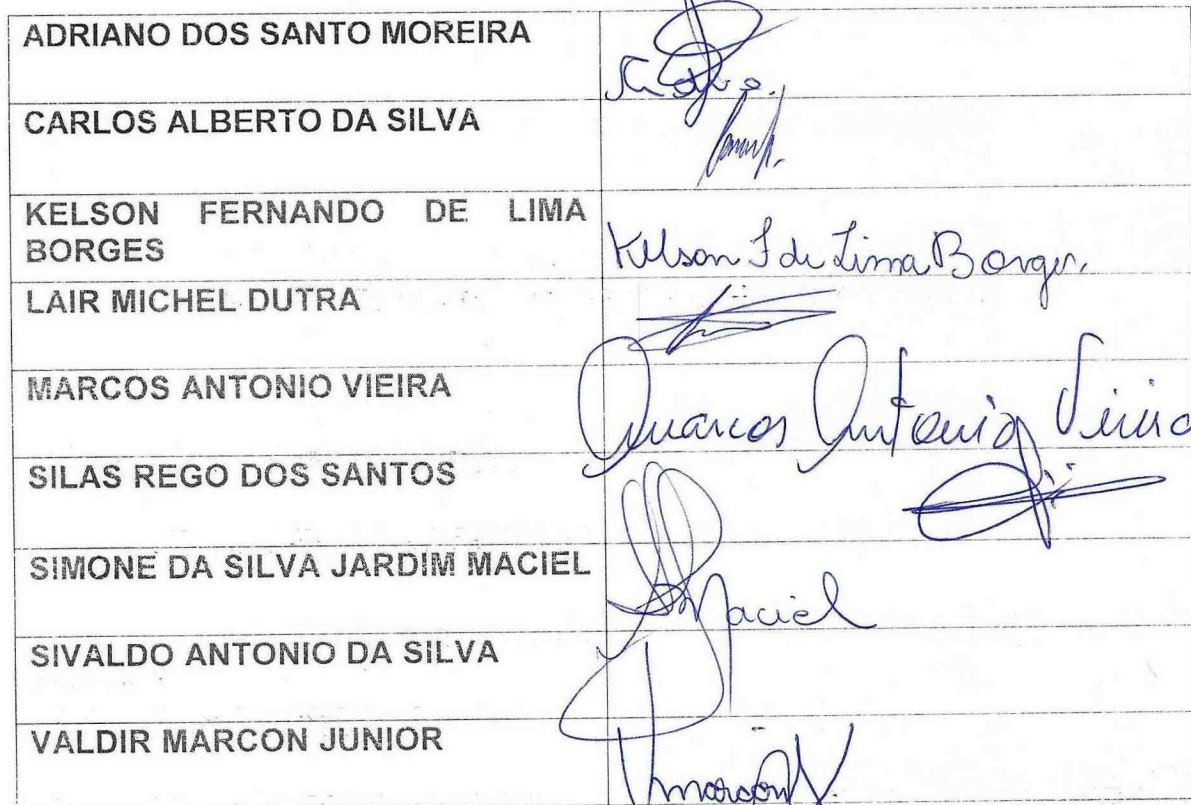 ADRIANO DOS SANTO MOREIRA
CARLOS ALBERTO DA SILVA
KELSON FERNANDO DE LIMA
BORGES
Kelson F de Lima Borges.
LAIR MICHEL DUTRA
MARCOS ANTONIO VIEIRA
Marcos Antonio Vieira
SILAS REGO DOS SANTOS
SIMONE DA SILVA JARDIM MACIEL
Maciel
SIVALDO ANTONIO DA SILVA
VALDIR MARCON JUNIOR